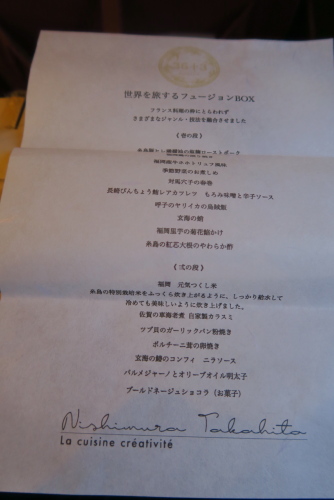 世界を旅するフュージョンBOX
フランス料理の枠にとらわれず
さまざまなジャンル・技法を融合させました
《壱の段》
糸島豚とレ ローストポーク
福岡 牛 トリュフ風味
季節野菜のお煮しめ
対馬穴子の春巻
長崎びんちょう鮪レアカツレツ もろみ味噌と辛子ソース
呼子のヤリイカの烏賊飯
玄海の蛸
福岡里芋の菊花餡かけ
糸島の紅芯大根のやわらか酢
《弐の段》
福岡 元気つくし米
糸島の特別栽培米をふっくら炊き上がるように、しっかり給水して
冷めても美味しいように炊き上げました。
佐賀の車海老煮 自家製カラスミ
ツブ貝のガーリックパン粉焼き
ポルチーニ茸の卵焼き
玄海の鰆のコンフィ ニラソース
パルメジャーノとオリーブオイル明太子
ブールドネージュショコラ(お菓子)
Nishimura Takahito
La cuisine créativité